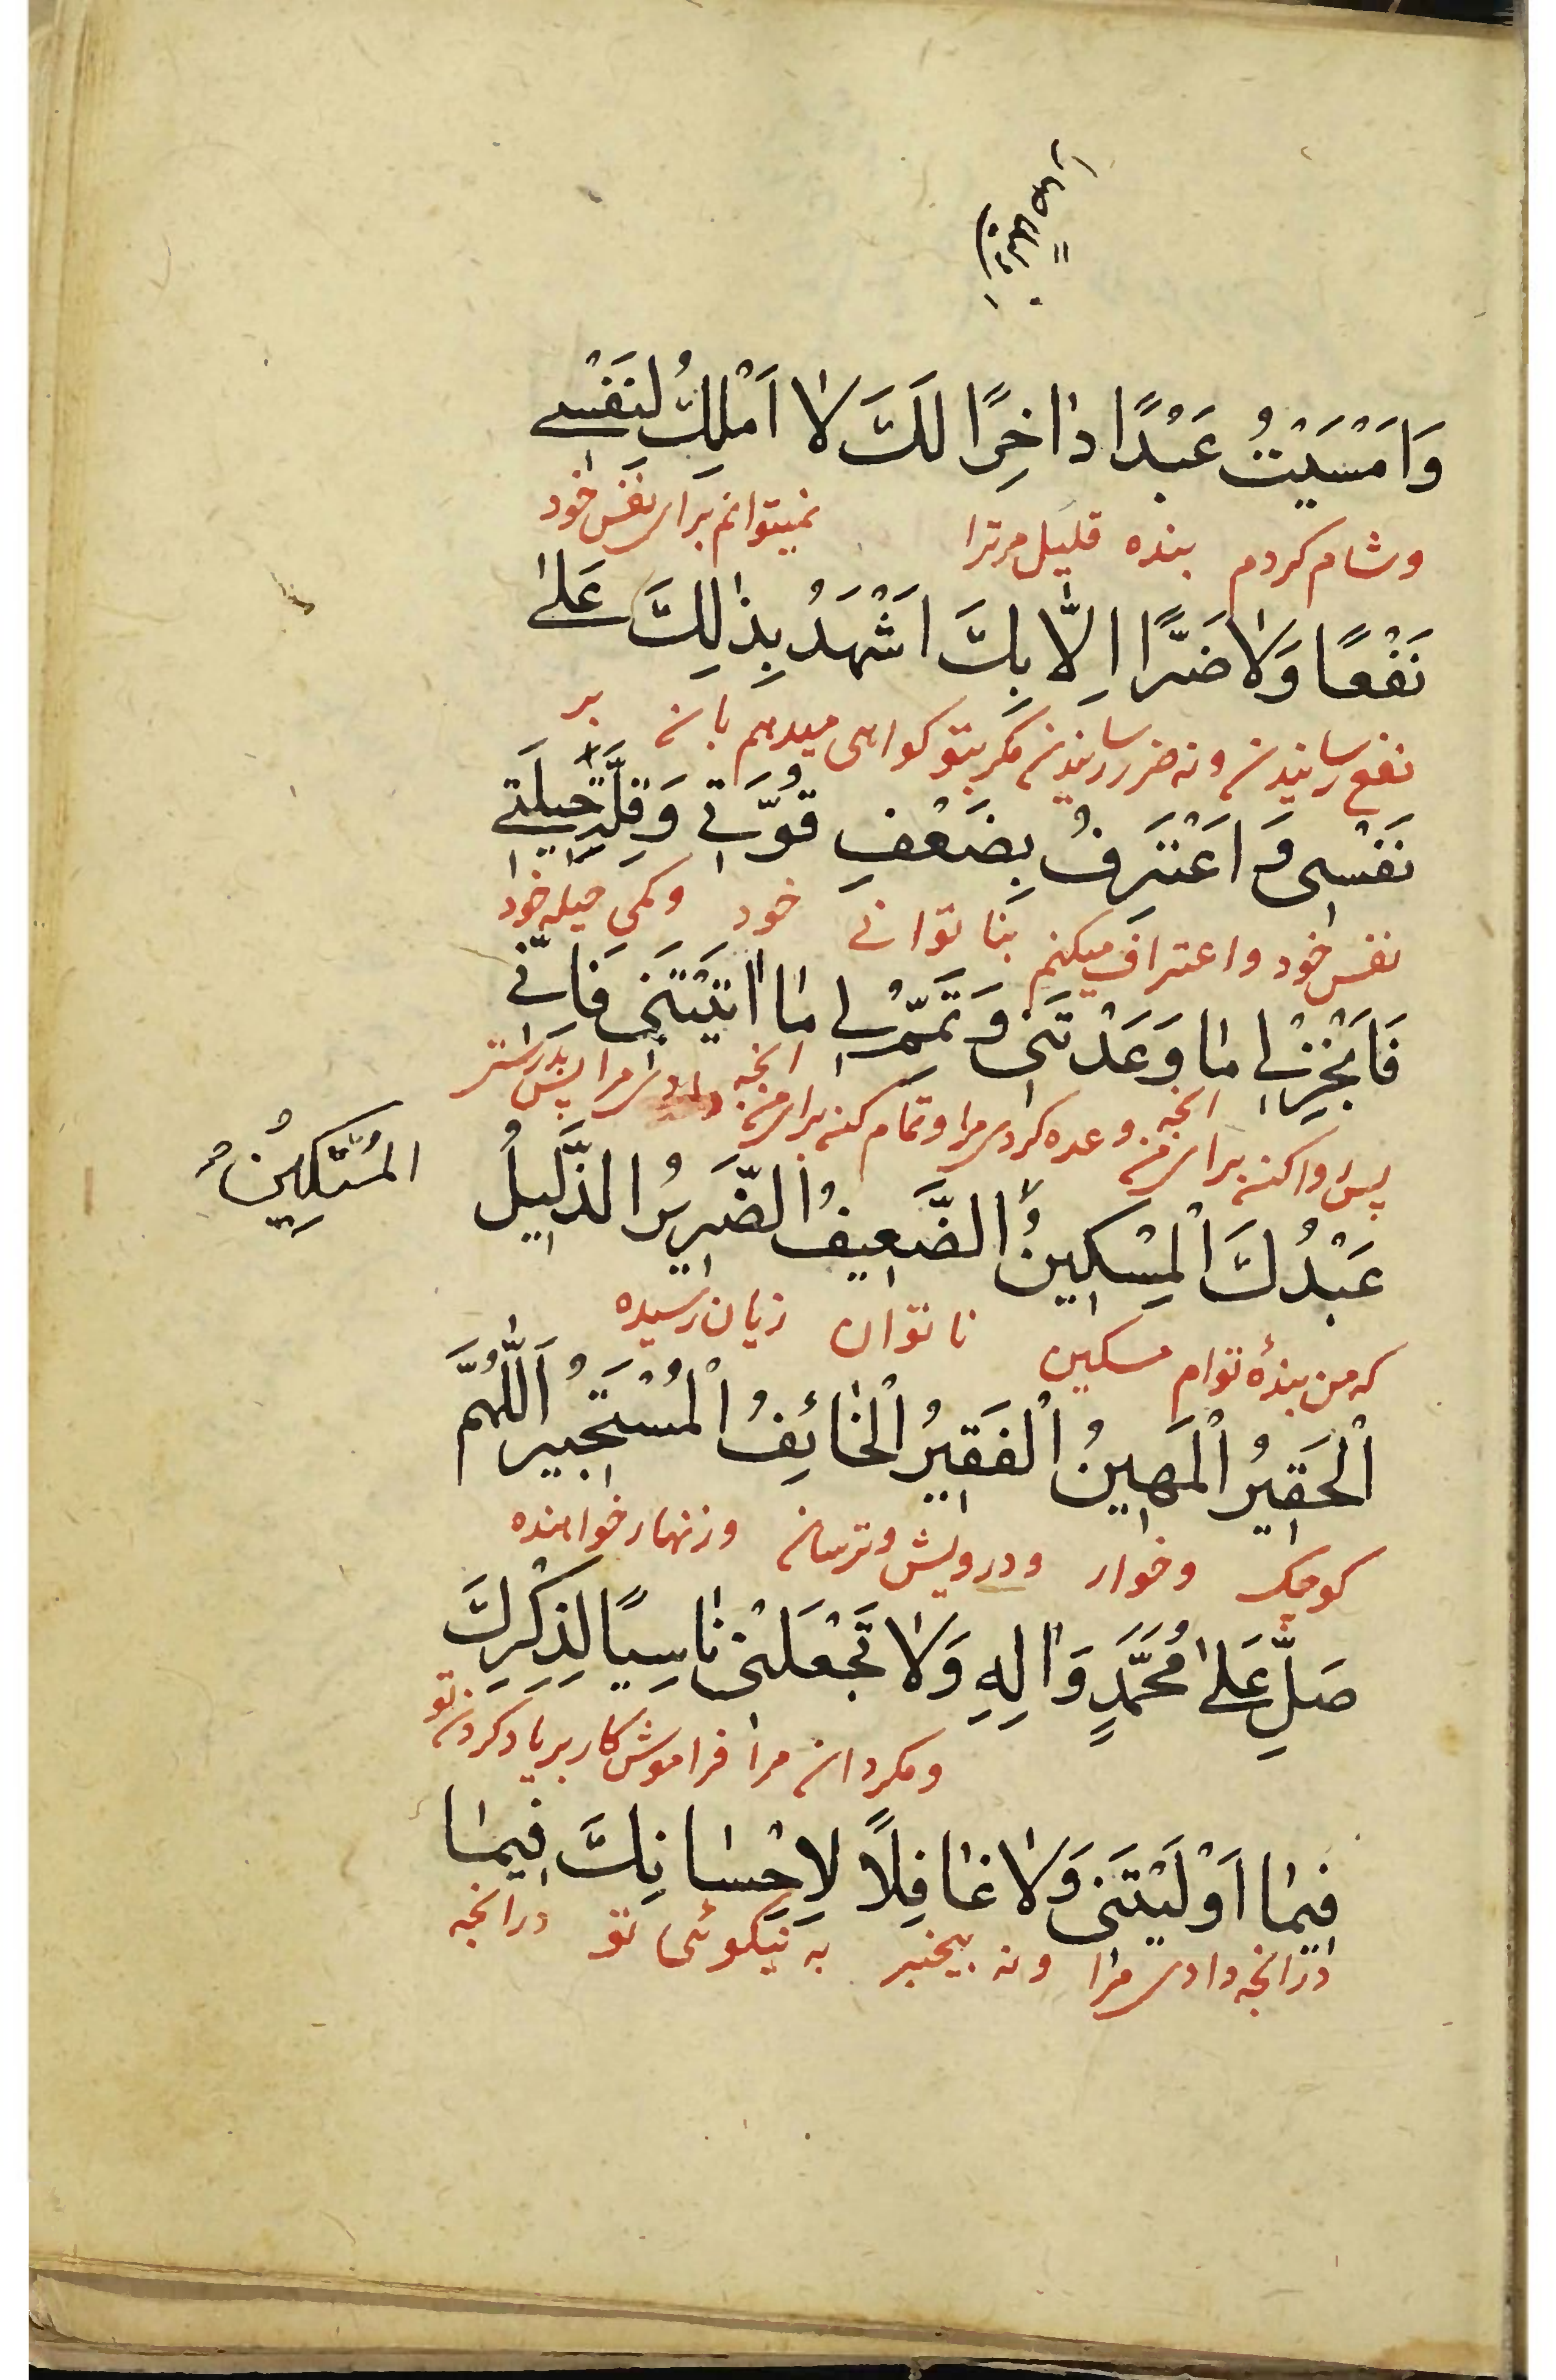 وَاَمْسَيْتُ عَبْدًا دٰاخِرًا لَكَ لٰا اَمْلِكُ لِنَفْسِي
وشام کردم بنده قلیل مرترا نمیتوانم برای نفس خود
نَفْعًا وَلٰا ضَرًّا اِلّٰا بِكَ اَشْهَدُ بِذٰلِكَ عَلىٰ
نفع رسانیدن و نه ضرر رسانیدن مکر بتو کواهی میدهم بان بر
نَفْسِى وَ اَعْتَرِفُ بِضَعْفِ قُوَّتِي وَقِلَّةِ حِيلَتِي
نفس خود و اعتراف میکنم بنا توانی خود وکمی حیله خود
فَاَنْجِزْ لِي مٰا وَعَدْتَنِى وَ تَمِّمْ لِي مٰا اٰتَيْتَنِى فَاِنّي
پس روا کن برای من انچه وعده کردی مرا و تمام کن برای من انچه دادی مرا پس بدرستی
عَبْدُكَ الْمِسْكِينُ الضَّعِيفُ الضَّرِيرُ الذَّلِيلُ
المُسْتَكِينُ
که من بندهٔ توام مسکین نا توان زیان رسیده
اْلحَقِيرُ اْلمَهِينُ اْلفَقِيرُ اْلخٰائِفُ اْلمُسْتَجِيرُ اَللّٰهُمَّ
کوچک وخوار ودرویش وترسان وزنهار خواهنده
صَلِّ عَلىٰ مُحَمَّدٍ وَاٰلِهِ وَلٰا تَجْعَلْنِى نٰاسِيًا لِذِكْرِكَ
ومکردان مرا فراموش کار بر یاد کردن تو
فِيمٰا اَوْلَيْتَنِى وَلٰا غٰافِلًا لِاِحْسٰانِكَ فِيمٰا
درانچه دادی مرا ونه بیخبر به نیکوئی تو درانچه